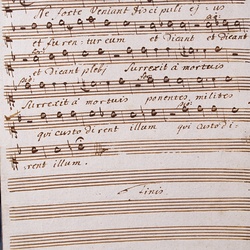 Ne forte Veniant Discipuli ejus
et furentur eum et Dicant et Dicant
et Dicant plebj Surrexit à mortuis
Surrexit à mortuis ponentes, milites
qui custodirent illum qui custodi=
rent illum.
Finis